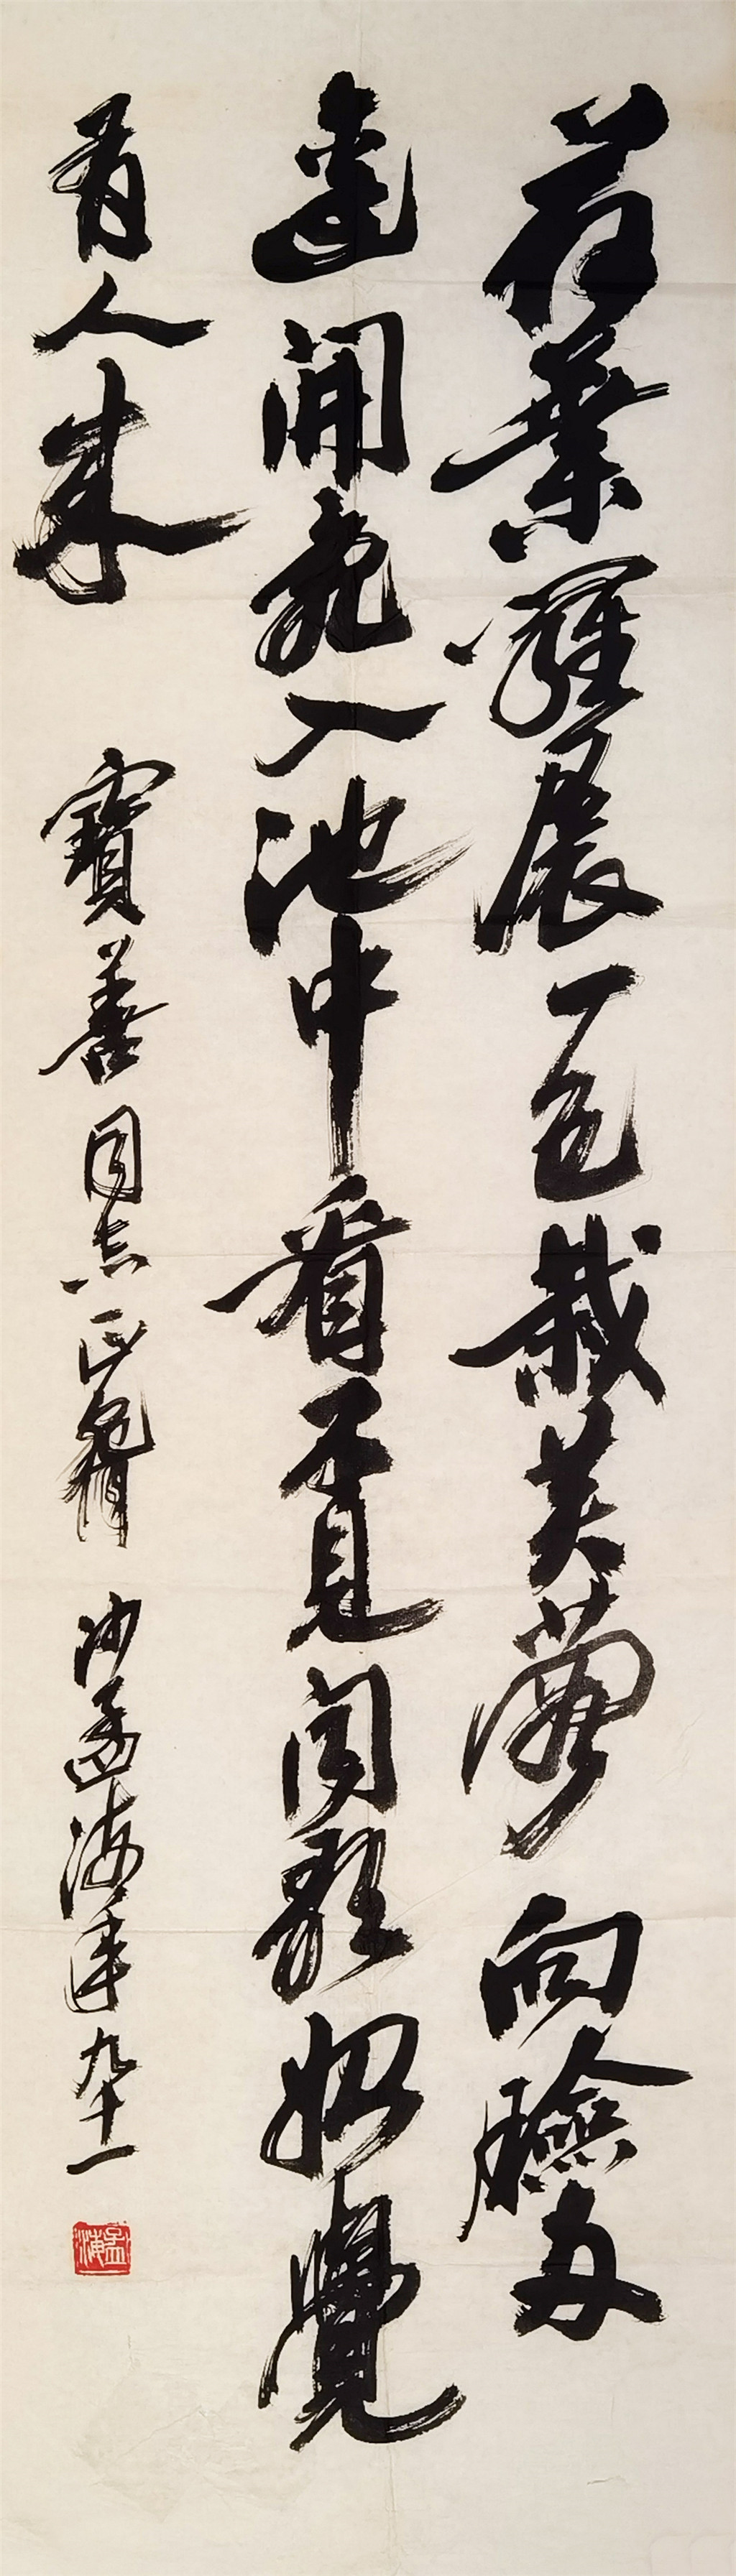 荷葉羅裙一色裁芙蓉向臉兩
邊開亂入池中看不見聞歌始覺
有人來
寶善同志正覽 沙孟海年九十一
孟海